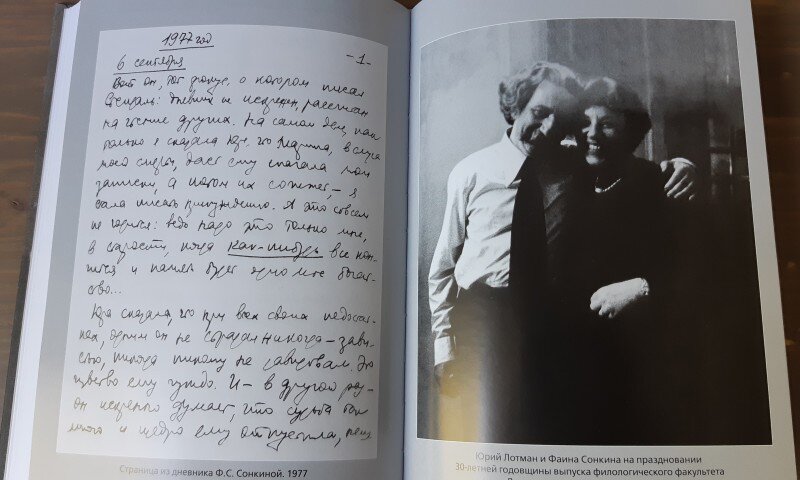 1977 год
-1-
6 сентября
Вот он, тот фокус, о котором писал
Стендаль: дневник не искренен, рассчитан
на чтение других. На самом деле, как
только я сказала Юре, что Марина, в случае
моей смерти, даст ему сначала мои
записки, а потом их сожжет, – я
стала писать принужденно. А это совсем
не годится: ведь надо это только мне,
в старости, когда как-нибудь все кон-
чится и память будет одно мое богат-
ство...
Юра сказал, что при всех своих недостат-
ках, одним он не страдал никогда – зави-
стью, никогда никому не завидовал. Это
чувство ему чуждо. И – в другой раз –
он искренно думает, что судьба так
много и щедро ему отпустила,
Страница из дневника Ф.С. Сонкиной. 1977
Юрий Лотман и Фаина Сонкина на праздновании
30-летней годовщины выпуска филологического факультета